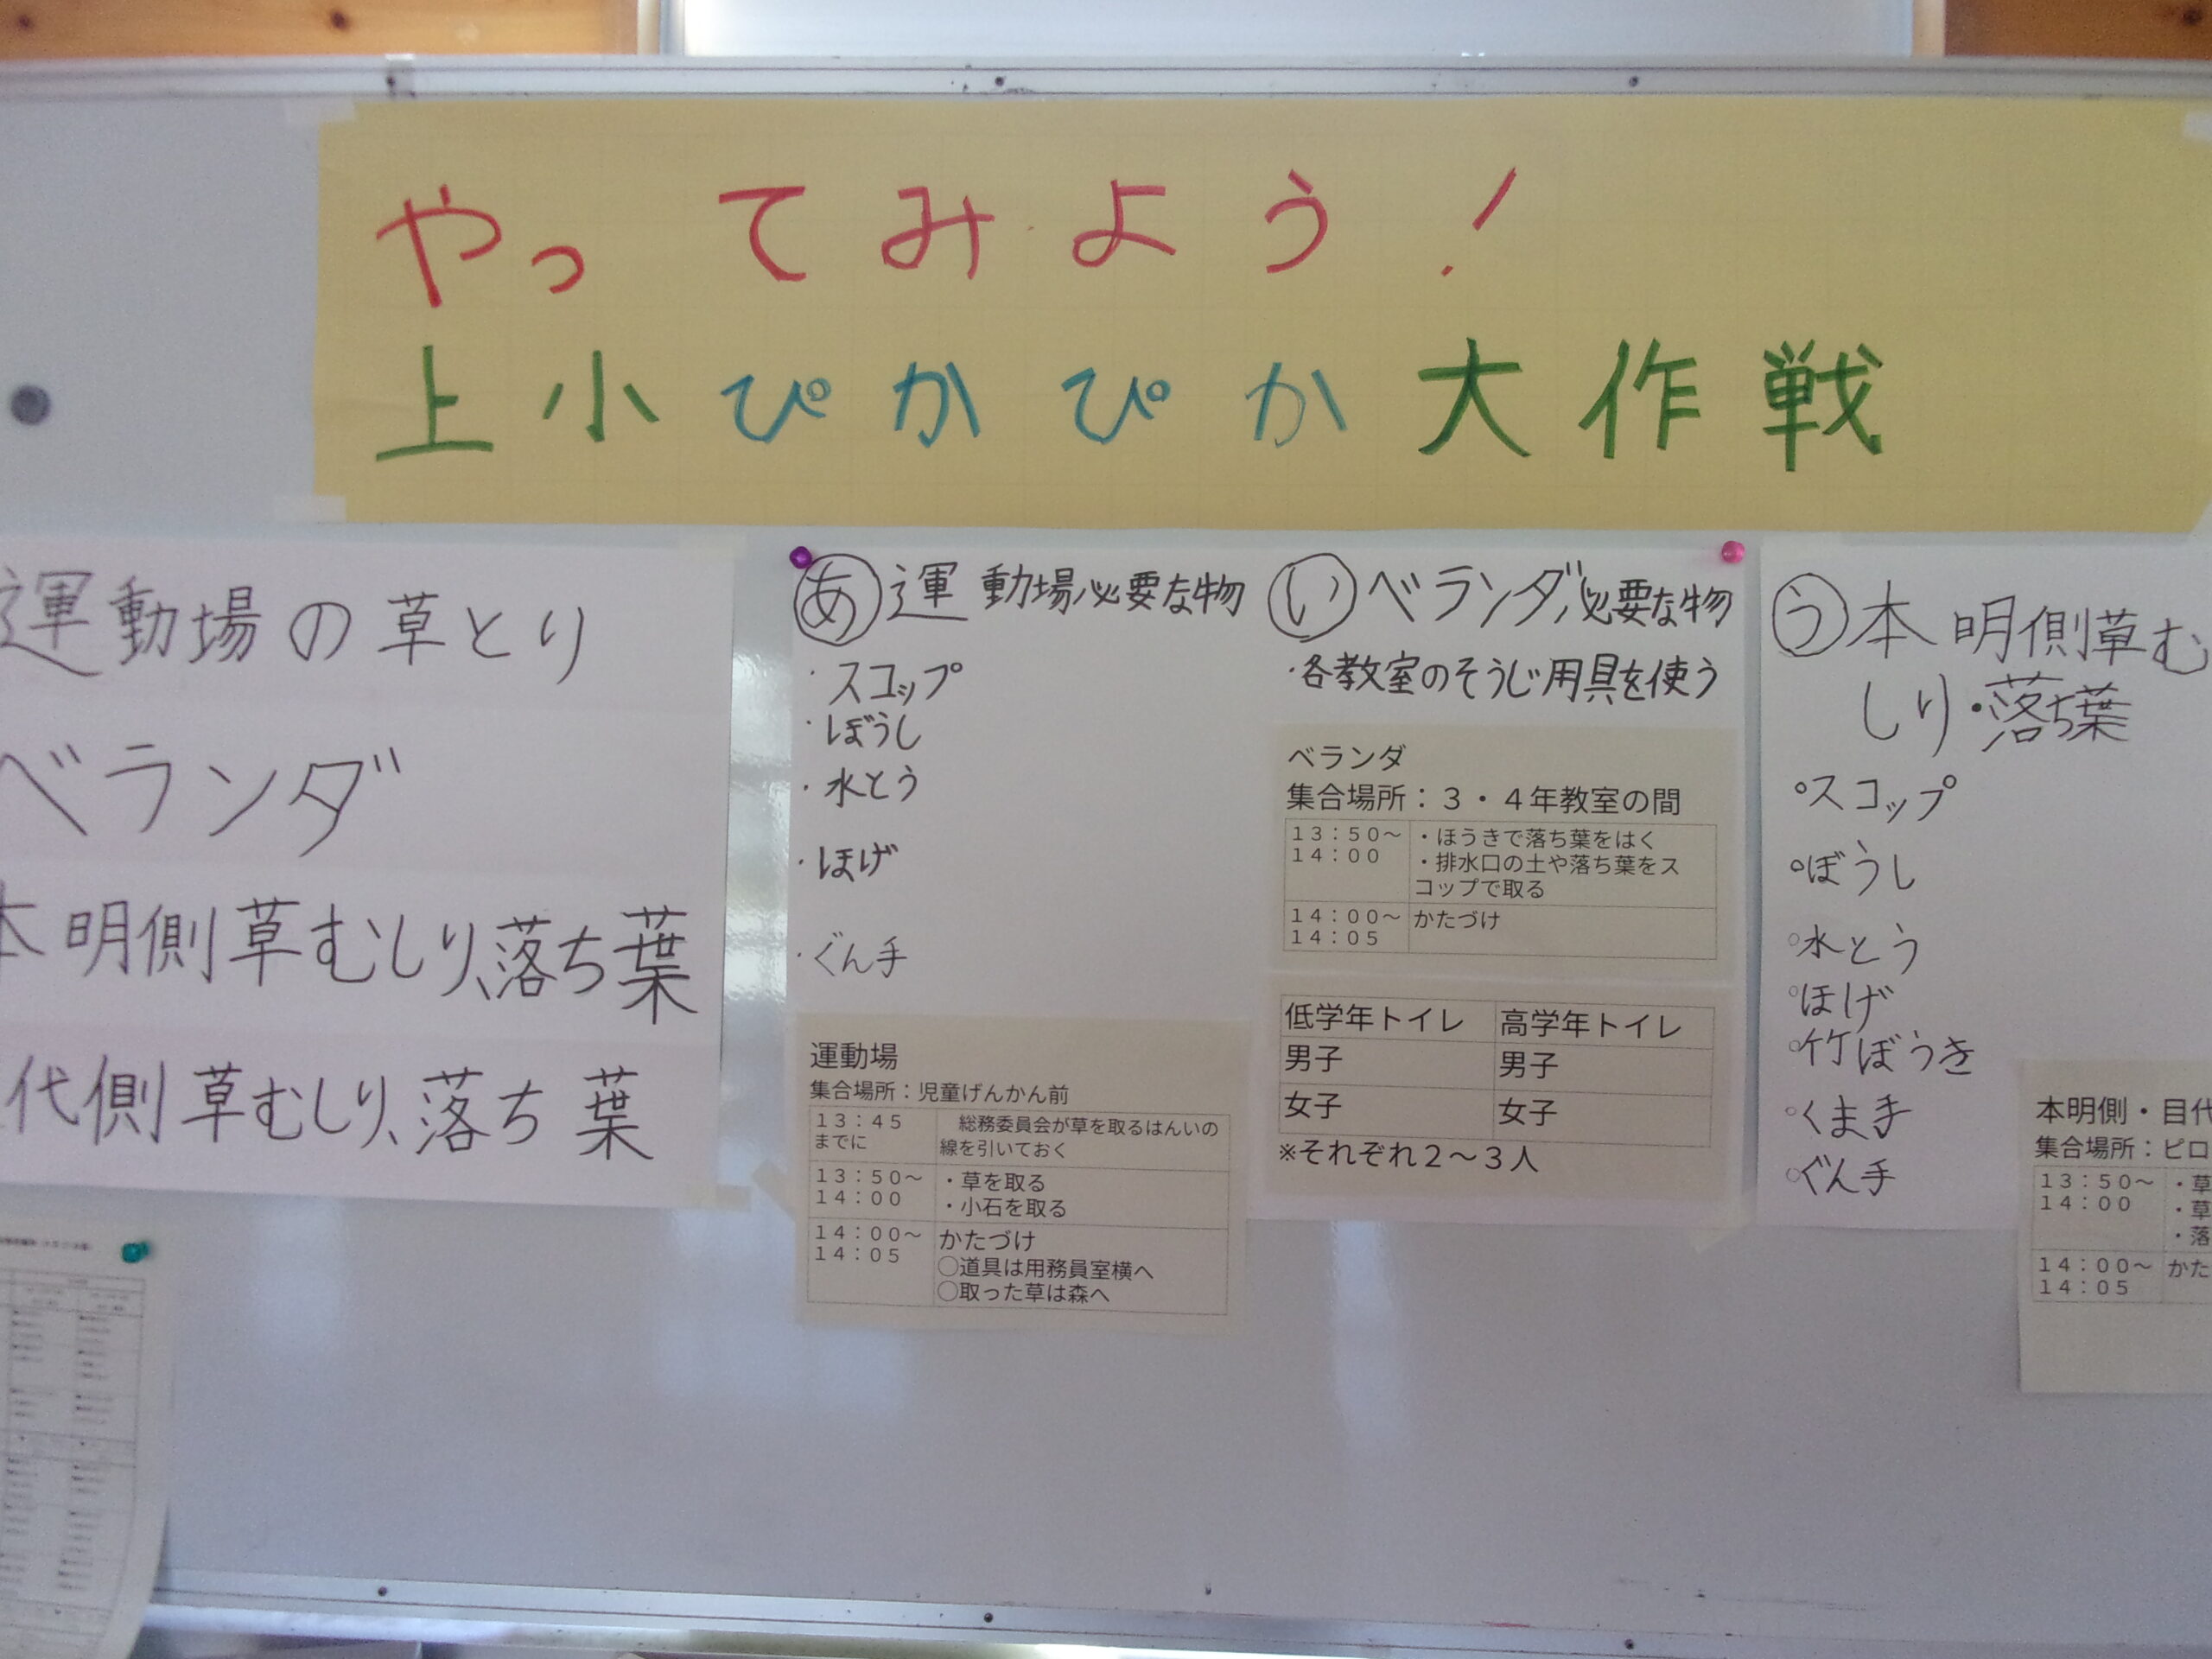 やってみよう!
上小ぴかぴか大作戦
運動場の草とり
ベランダ
本明側草むしり、落ち葉
代側草むしり、落ち葉
あ 運動場必要な物
・スコップ
・ぼうし
・水とう
・ほげ
・ぐん手
運動場
集合場所：児童げんかん前
13：45
までに
総務委員会が草を取るはんいの
線を引いておく
13：50～
14：00
・草を取る
・小石を取る
14：00～
14：05
かたづけ
○道具は用務員室横へ
○取った草は森へ
い ベランダ必要な物
・各教室のそうじ用具を使う
ベランダ
集合場所：３・４年教室の間
13：50～
14：00
・ほうきで落ち葉をはく
・排水口の土や落ち葉をス
コップで取る
14：00～
14：05
かたづけ
低学年トイレ 高学年トイレ
男子 男子
女子 女子
※それぞれ２～３人
う 本明側草む
しり・落ち葉
○スコップ
○ぼうし
○水とう
○ほげ
○竹ぼうき
○くま手
○ぐん手
本明側・目代
集合場所：ピロ
13：50～
14：00
・草
・草
・落
14：00～
14：05
かた